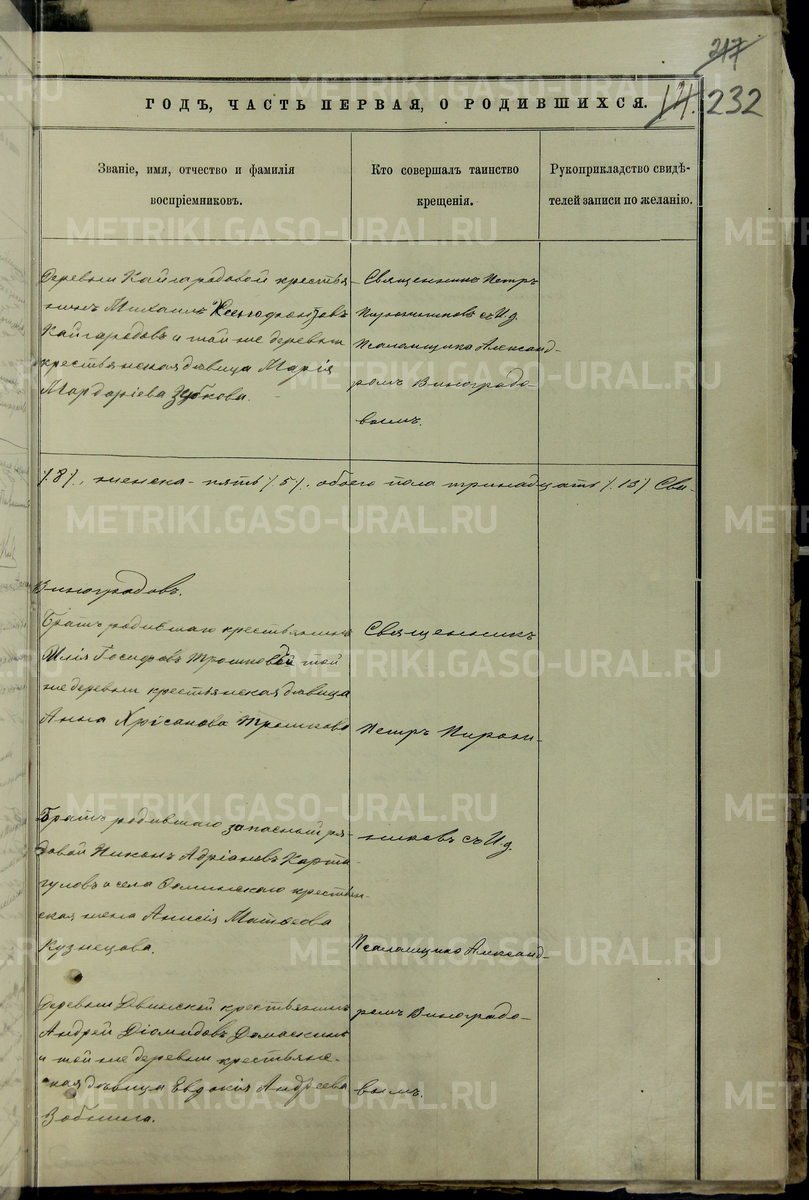 217
14. 232
ГОДЪ, ЧАСТЬ ПЕРВАЯ, О РОДИВШИХСЯ.
Званіе, имя, отчество и фамилія
воспріемниковъ.
Кто совершалъ таинство
крещенія.
Рукоприкладство свидѣ-
телей записи по желанію.
Деревни Кайгородовой крестья-
нинъ Михаилъ Ксенофонтовъ
Кайгородовъ и той же деревни
крестьянская дѣвица Марія
Мардаріева Зубкова.
Священникъ Петръ
съ И. д.
Псаломщика Александ-
ромъ Виноградо-
вымъ.
/8/, женска - пять /5/, обоего пола тринадцать /13/ Свя-
Виноградовъ.
Братъ родившаго крестьянинъ
Илія Іосифовъ и той
же деревни крестьянская дѣвица
Анна Хрісанова
Священникъ
Петръ
Братъ родившаго запасный ря-
довой Никонъ Адріановъ
и села крестьян-
ская жена Анисія Матѳеева
Кузнецова.
никовъ съ И. д.
Псаломщика Александ-
Деревни Двинской крестьянинъ
Андрей Діомидовъ
и той же деревни крестьянс-
кая дѣвица Евдокія Андреева
ромъ Виноградо-
вымъ.
METRIKI.GASO-URAL.RU